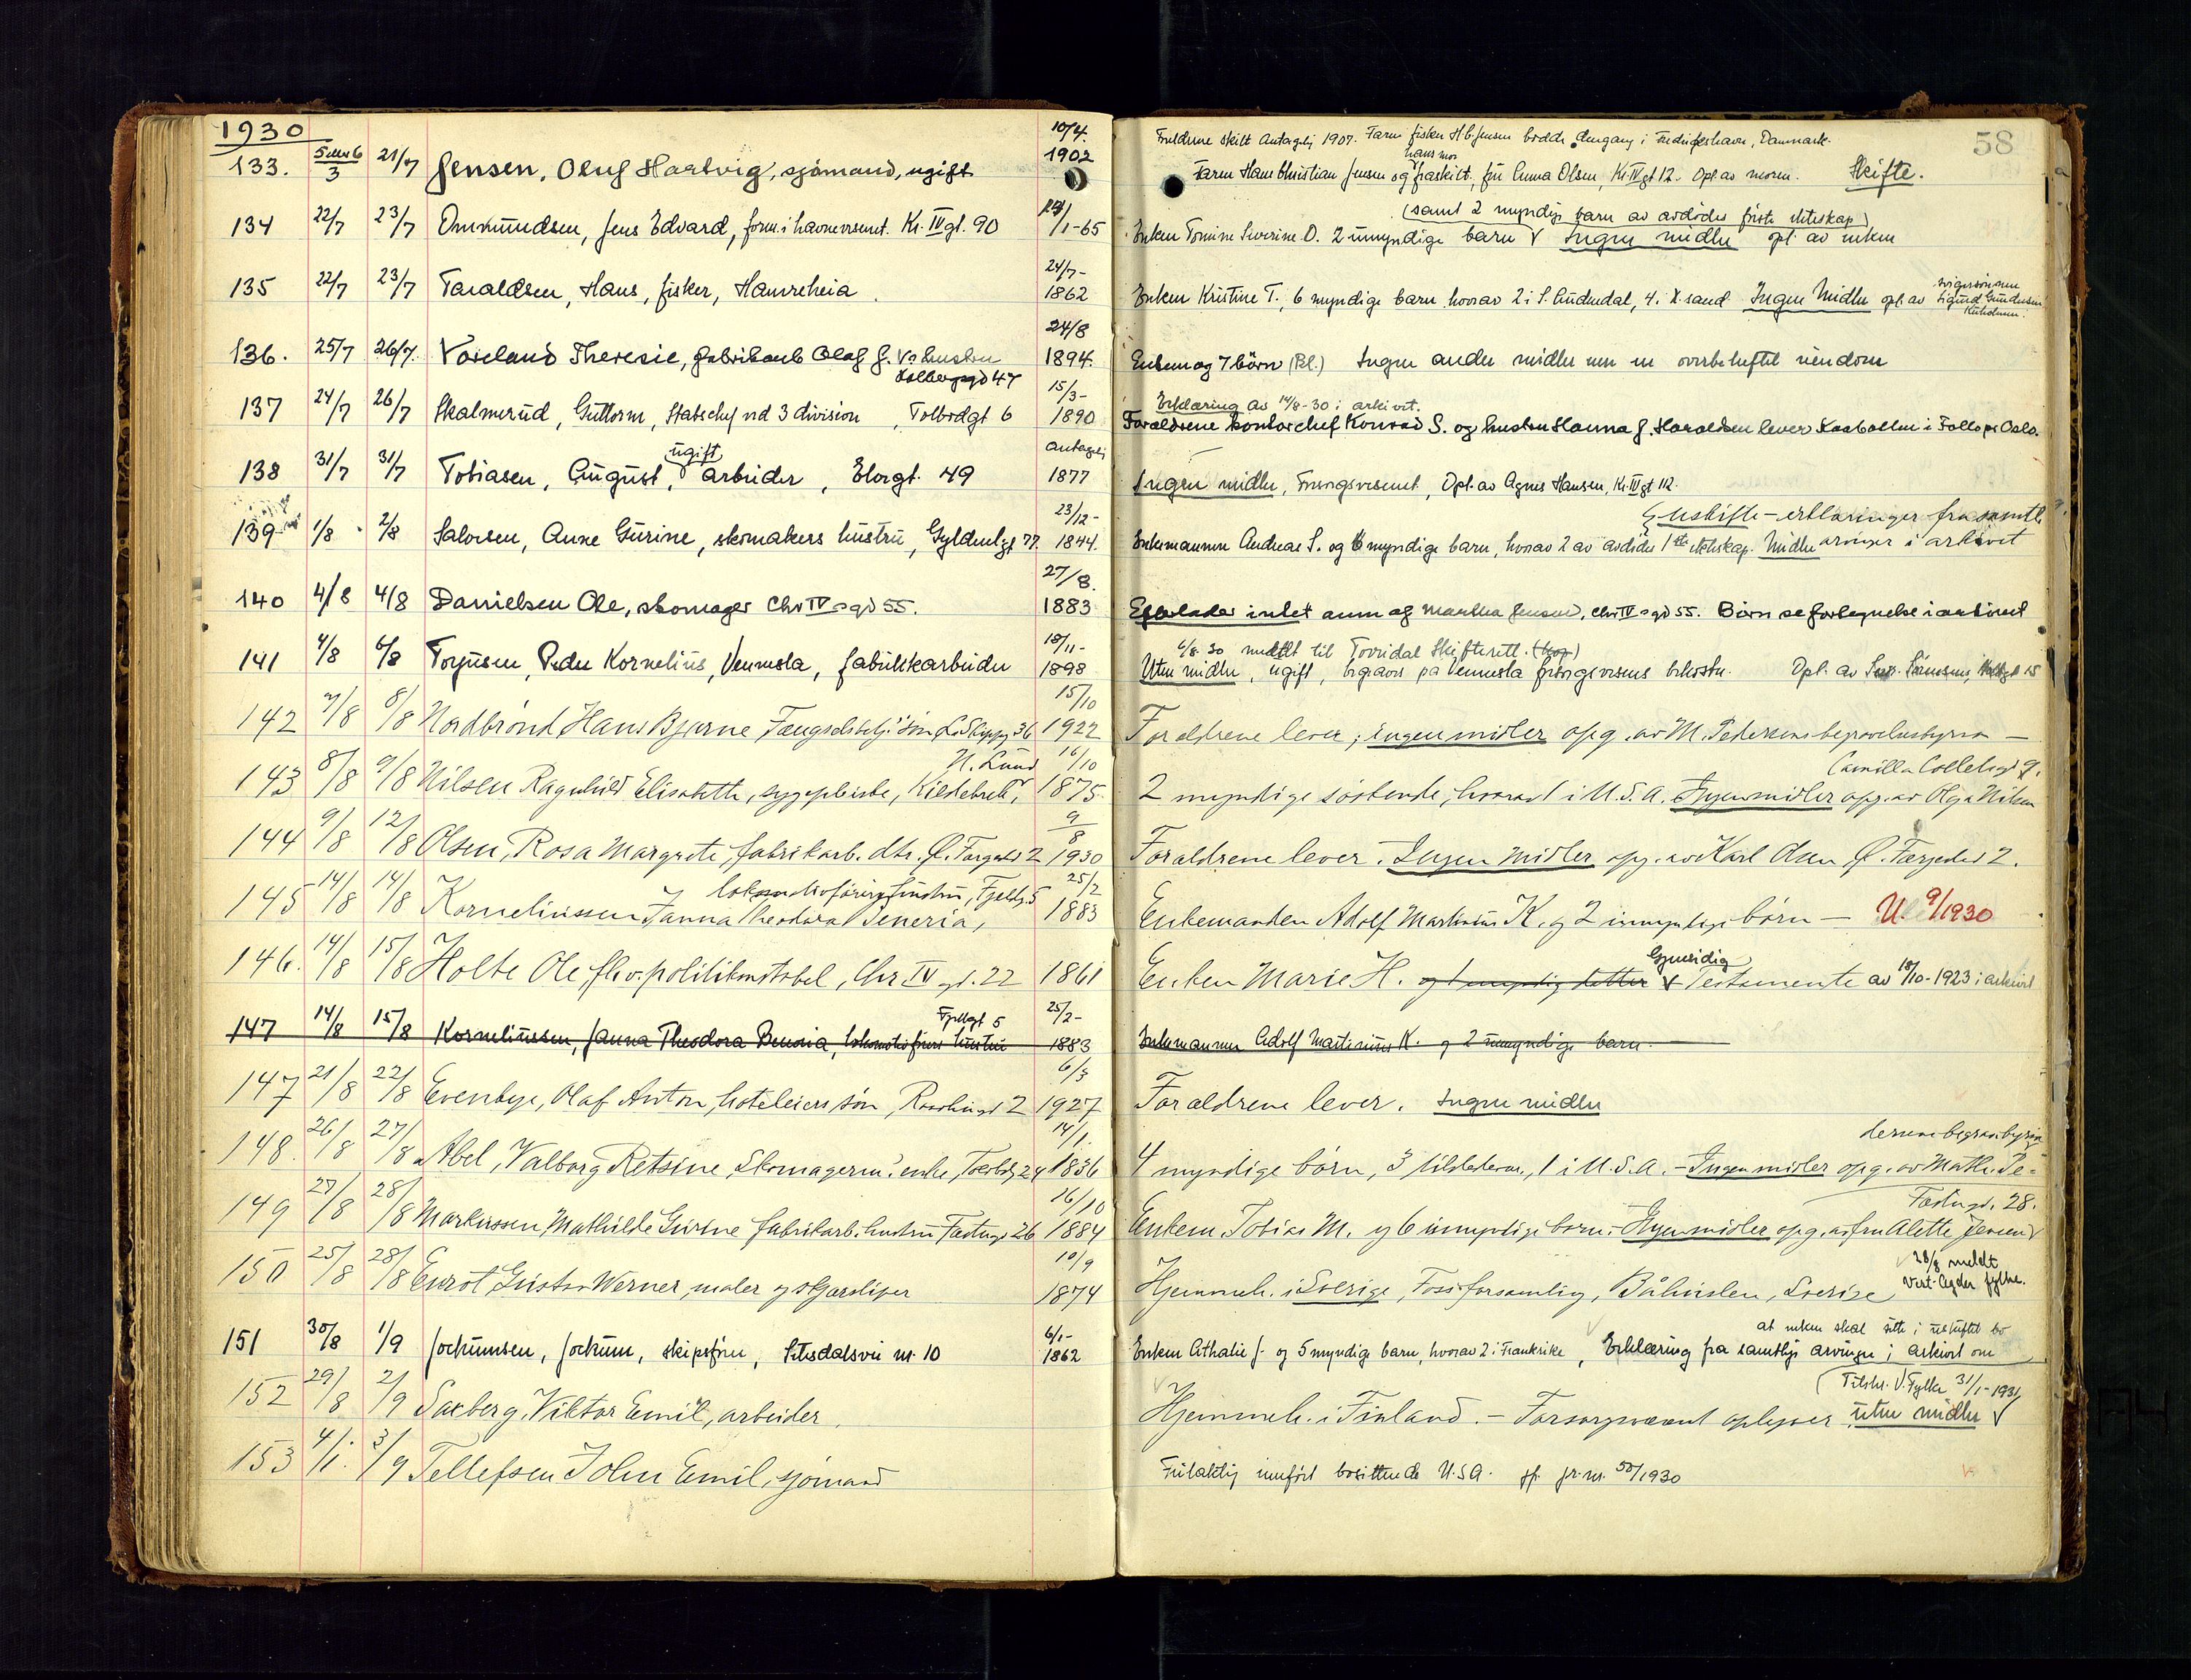 1930
58
133. 5 eller 6/3 21/7 Jensen, Oluf Hartvig, sjømand, ugift 10/4. 1902
Foreldrene skilt antagelig 1907. Faren fisker H.C. Jensen bodde dengang i Fredrikshavn, Danmark.
Faren Hans Christian Jensen og hans mor fraskilt, fru Anna Olsen, Kr. IV gt 12. Opl. av moren. Skifte.
134 22/7 23/7 Ommundsen, Jens Edvard, form. i havnevesenet. Kr. IV gt. 90 /1-65
(samt 2 myndige barn av avdødes første ekteskap)
Enken Tomine Severine O. 2 umyndige barn V Ingen midler opl. av enken
135 22/7 23/7 Taraldsen, Hans, fisker, Hamreheia 24/7- 1862
Enken Kristine T., 6 myndige barn hvorav 2 i S. Audnedal, 4 i X.sand Ingen Midler opl. av svigersønnen Sigurd Gundersen
136. 25/7 26/7. Voreland Theresie, fabrikarb Olaf J. Vs hustru 24/8 1894.
Holbergsgd 47
Enkem og 7 börn (Bl.) Ingen andre midler enn en overbeheftet eiendom
137 24/7 26/7 Skalmerud, Guttorm, Stabschef ved 3 division, Tolbodgt 6 15/3- 1890
Erklæring av 14/8-30 i arkivet.
Foraldrene kontorchef Konrad S. og hustru Hanna J. Haraldsen lever Kaabollen i Follo pr Oslo.
138 31/7 31/7 Tobiasen, August, ugift arbeider, Elvegt. 49 antagelig 1877
Ingen midler, Forsorgsvesenet, Opl. av Agnes Hansen, Kr. IV gt 112.
139 1/8 2/8 Salvesen, Anne Gurine, skomakers hustru, Gyldenlgt 77. 23/12- 1844.
Uskifte-erklæringer fra samtl.
Enkemannen Andreas S. og 6 myndige barn, hvorav 2 av avdødes 1ste ekteskap. Midler arvinger i arkivet
140 4/8 4/8 Danielsen Ole, skomager Chr IV s gd 55. 27/8. 1883
Efterlader intet anm af Martha Jensen, Chr IV s gd 55. Børn se fortegnelse i arkivet
141 4/8 6/8 Torjusen, Peder Kornelius, Vennesla, fabrikkarbeider 18/11- 1898
6/8 30 meldt til Tovdal Skifterett.
Uten midler, ugift, begraves på Vennesla forsorgsvesens bekostn. Opl. av
142 7/8 8/8 Nordbrønd Hans Bjarne Fængselsbetj. søn 36 15/10 1922
Foraldrene lever, ingen midler opg. av M. Pedersens begravelsesbyraa —
143 8/8 9/8 Nilsen Ragnhild Elisabeth, sygepleierske, Kildebrekk V. N. Lund 16/10 1875
Camilla Colletsgd 9.
2 myndige søskende, hvorav 1 i U.S.A. Ingen midler opg. av Olga Nilsen
144 9/8 12/8 Olsen, Rosa Margrete, fabrikarb. dtr. Ø. Fergested 2 9/8 1930
Foraldrene lever. Ingen Midler opg. av Karl Olsen, Ø. Færgested 2.
145 14/8 14/8 Korneliussen Janna Theodora Beneria, lokomotivførers hustru, Fjeldg. 5 25/2 1883
Enkemanden Adolf Martinius K. og 2 umyndige børn — U. 9/1930
146. 14/8 15/8 Holte Ole, fhv. politikonstabel, Chr IV gt. 22 1861
Enken Marie H. og 1 myndig datter V Gjensidig Testamente av 18/10-1923 i arkivet
147 14/8 15/8 Korneliussen, Janna Theodora Benoria, lokomotivførers hustru Fjellgt 5 25/2- 1883
Enkemannen Adolf Martinius K. og 2 umyndige barn
147 21/8 22/8 Evenbye, Olaf Anton, hoteleiers søn, 2 6/3 1927
Foraldrene lever. Ingen midler
148. 26/8 27/8 Abel, Valborg Retsine, Skomagerm. enke, Tordsk. 24 14/1. 1836
dersens begravbyraa
4 myndige børn, 3 tilstede, 1 i U.S.A. — Ingen midler opg. av Math. Pe-
149 27/8 28/8 Markussen, Mathilde Gurine fabrikarb. hustru Festnings 26 16/10 1884
Festngt. 28.
Enkem. Tobias M. og 6 umyndige børn. Ingen midler opg. av fru Alette Jensen
150 25/8 28/8 Enrot Gustav Werner, maler og skjærsliper 10/9 1874
Hjemmeh. i Sverige, Foss forsamling, Båhuslen, Sverige 28/8 meldt Vest-Agder fylke.
151 30/8 1/9 Jochumsen, Jochum, skipsfører, Setesdalsvei nr. 10 6/1- 1862
at enken skal sitte i uskiftet bo
Enken Athalie J. og 5 myndige barn, hvorav 2 i Frankrike, Erklæring fra samtlige arvinger i arkivet om
152 29/8 2/9 Saxberg, Viktor Emil, arbeider
(Tilskr. V. Fylke 31/1-1931.
Hjemmeh. i Finland. — Forsorgsvesenet oplyser uten midler V
153 4/1. 3/9 Tellefsen John Emil, sjømand
Feilaktig innført bosittende U.S.A. jf. jr. nr. 50/1930